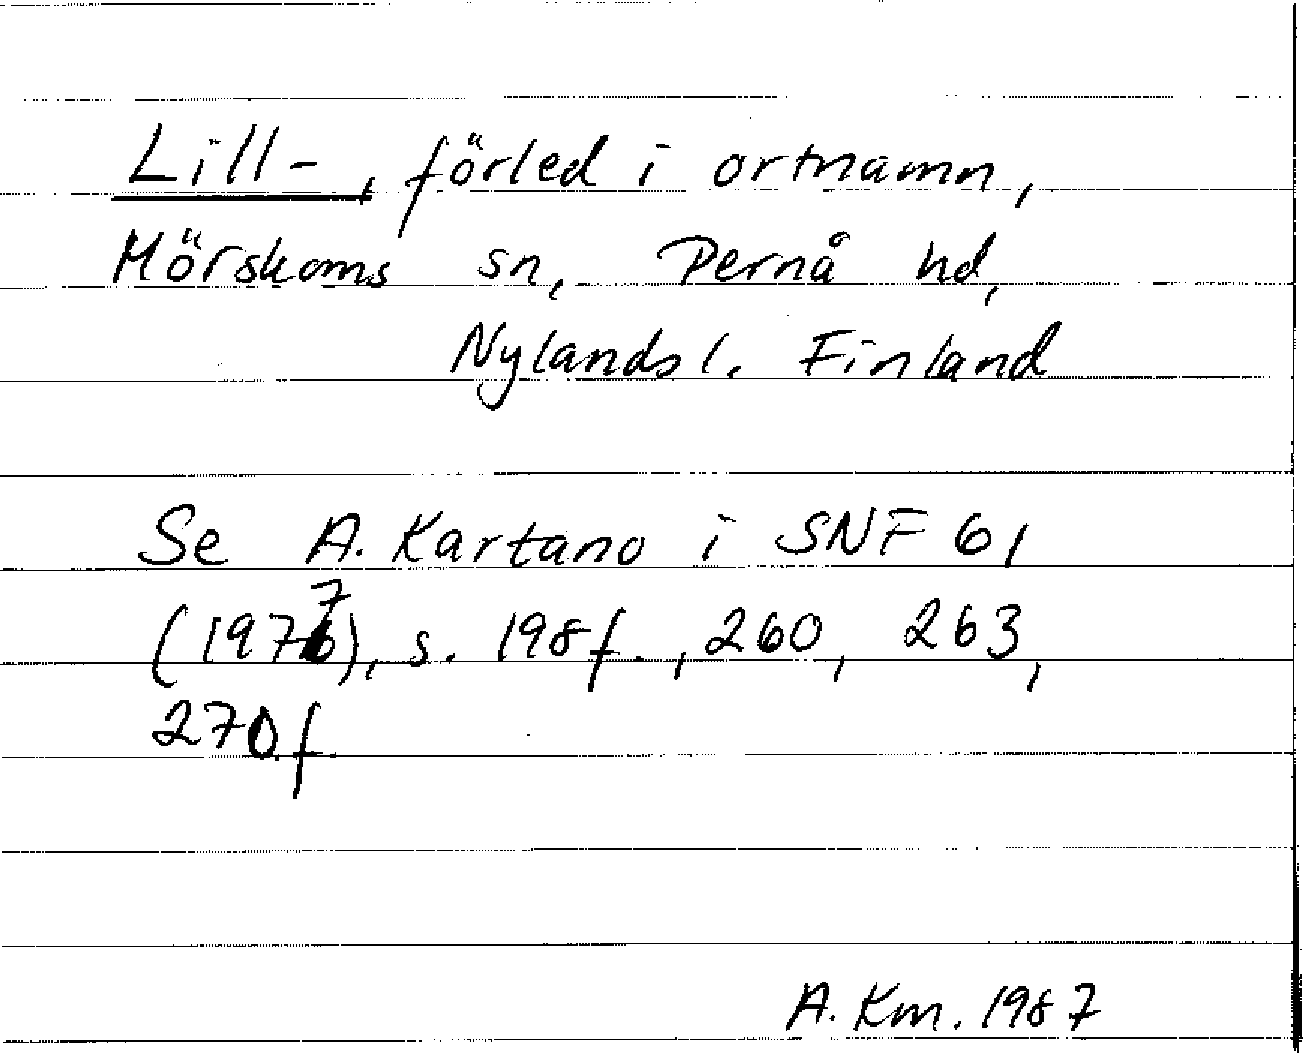 Lill-, förled i ortnamn,
Mörskoms sn, Pernå hd,
Nylands l. Finland
Se A. Kartano i SNF 61
(1977), s. 198f., 260, 263,
270f.
A. Km. 1987